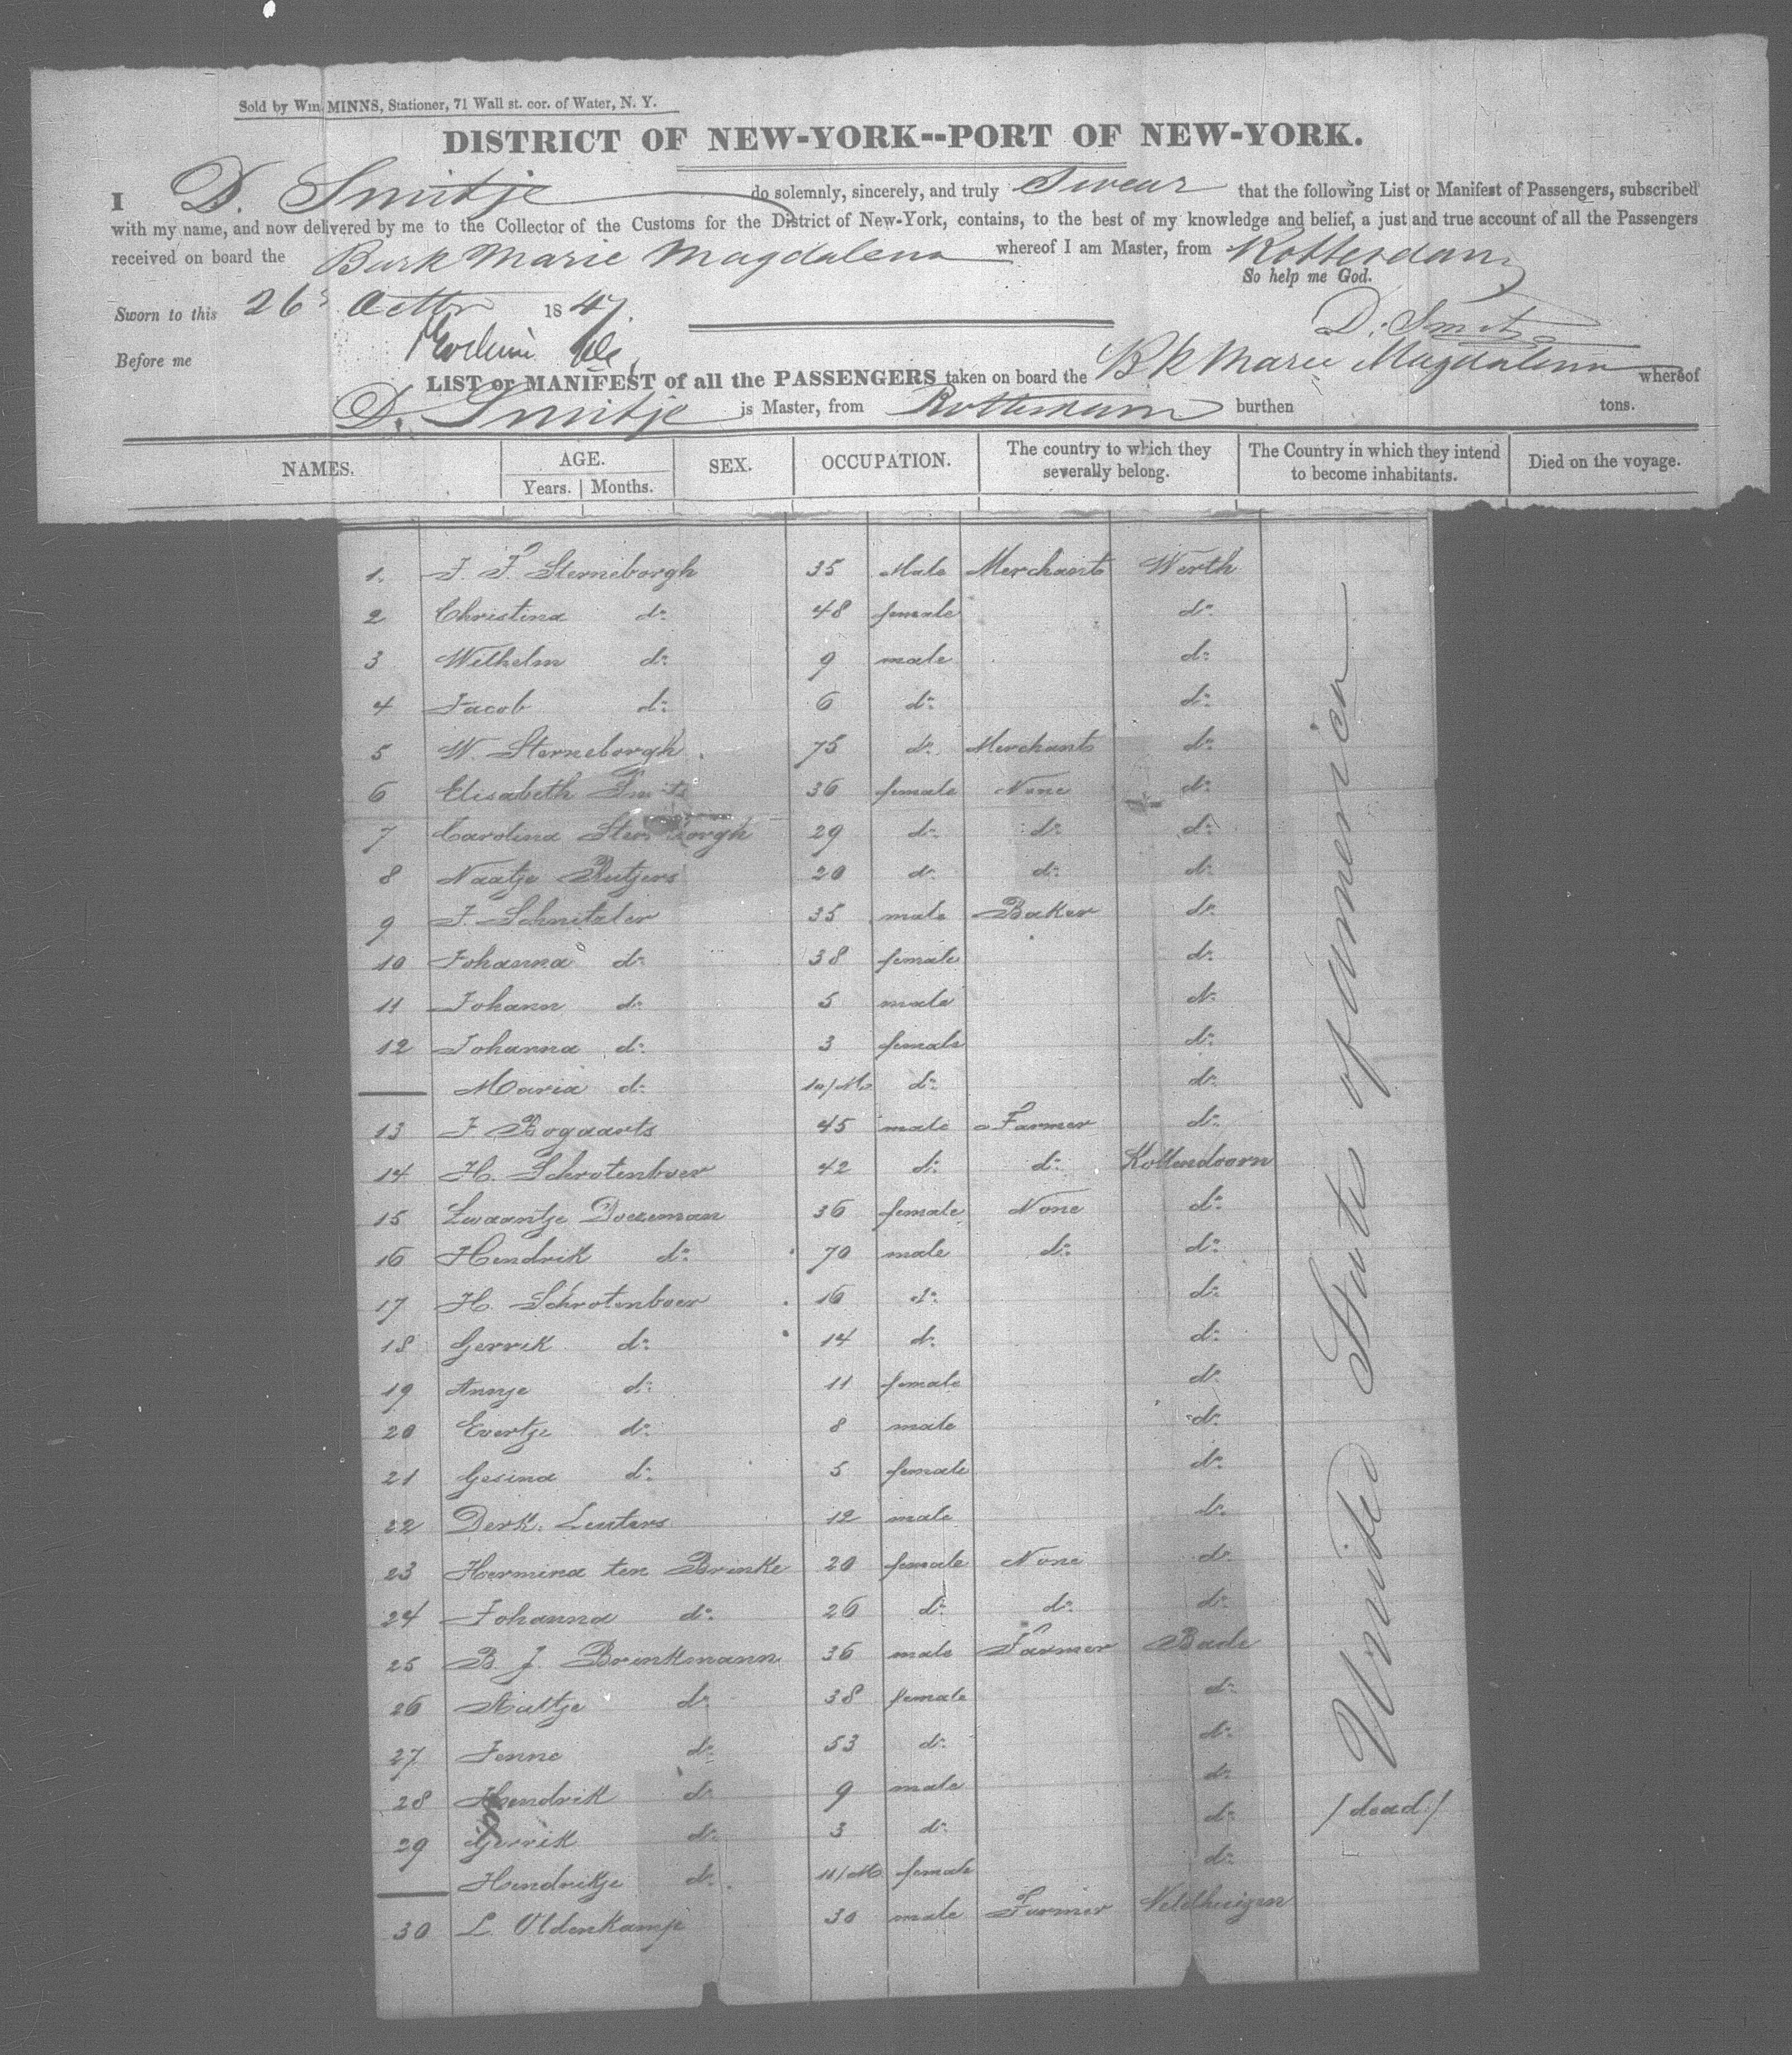 Sold by Wm. MINNS, Stationer, 71 Wall st. cor. of Water, N. Y.
DISTRICT OF NEW-YORK--PORT OF NEW-YORK.
I D. Smitje do solemnly, sincerely, and truly Swear that the following List or Manifest of Passengers, subscribed
with my name, and now delivered by me to the Collector of the Customs for the District of New-York, contains, to the best of my knowledge and belief, a just and true account of all the Passengers
received on board the Bark Marie Magdalena whereof I am Master, from Rotterdam
So help me God.
Sworn to this 26 1847. D. Smit
Before me
LIST or MANIFEST of all the PASSENGERS taken on board the Bk Marie Magdalena whereof
D. Smitje is Master, from burthen tons.
NAMES. AGE. Years. Months. SEX. OCCUPATION. The country to which they severally belong. The Country in which they intend to become inhabitants. Died on the voyage.
1. J. F. Sterneborgh 35 Male Merchants Werth
2 Christina do: 48 female do:
3 Wilhelm do: 9 male do:
4 Jacob do: 6 do: do:
5 W. Sterneborgh 75 do: Merchants do:
6 Elisabeth Smits 36 female None do:
7 Carolina Sterneborgh 29 do: do: do:
8 Naatje Rutjers 20 do: do: do:
9 J. Schnitzler 35 male Baker do:
10 Johanna do: 38 female do:
11 Johann do: 5 male do:
12 Johanna do: 3 female do:
— Maria do: 10/M. do: do:
13 J Bogaarts 45 male Farmer do:
14 H. Schrotenboer 42 do: do: Kottendoorn
15 Zwaantje Doezeman 36 female None do:
16 Hendrik do: 70 male do: do:
17 H. Schrotenboer 16 do: do:
18 Gerrik do: 14 do: do:
19 Annje do: 11 female do:
20 Evertje do: 8 male do:
21 Gesina do: 5 female do:
22 Derk. Leuters 12 male do:
23 Hermina ten Brinke 20 female None do:
24 Johanna do: 26 do: do: do:
25 B. J. Brinkmann 36 male Farmer Bade
26 do: 38 female do:
27 Jenne do: 53 do: do:
28 Hendrik do: 9 male do:
29 Gerrik do: 3 do: do: / dead /
— Hendrikje do: 11/M. female do:
30 L. Oldenkamp 30 male Farmer
United States of America